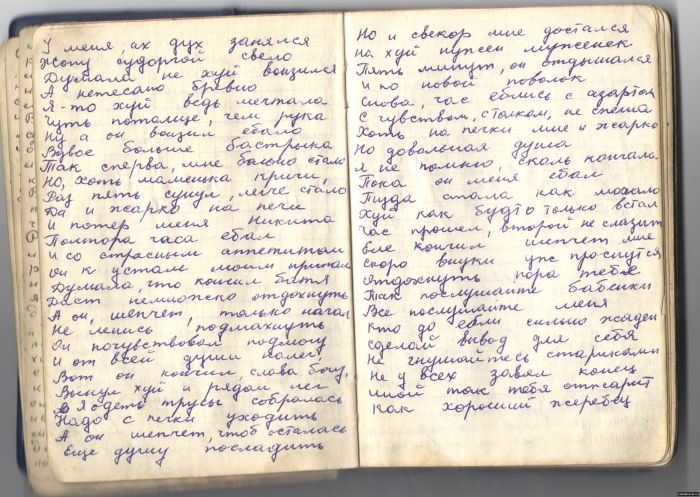 У меня, ах дух занялся
Жопу судоргой свело
Думала не хуй вонзился
А нетесано бревно
Я-то хуй ведь мечтала
Чуть потолще, чем рука
Ну а он вонзил ебало
Вдвое больше бастрыка
Так сперва, мне больно стало
Но, хоть маменька кричи,
Раз пять сунул, легче стало
Да и жарко на печи
И потер меня Никита
Полтора часа ебал
И со страсным аппетитом
Он к устам моим припал
Думала, что кончил битя
Даст немножко отдохнуть
А он, шепчет, только начал
Не ленись, подмахнуть
Он почувствовал подмогу
И от всей души налег,
Вот он кончил, слава богу,
Вынул хуй и рядом лег
Я одеть трусы собралась
Надо с печки уходить
А он шепчет, чтоб осталась
Еще душу посладить
Но и свекор мне достался
На хуй нужен муженек
Пять минут, он отдышался
И по новой поволок
Снова, час еблись с азартом
С чувством, с толком, не спеша
Хоть на печки мне и жарко
Но довольная душа
Я не помню, сколь кончала
Пока он меня ебал
Пизда стала как мочало
Хуй как будто только встал
Час прошел, второй не слазит
Еле кончил шепчет мне
Скоро внуки уж проснутся
Отдохнуть пора тебе
Так послушайте бабенки
Все послушайте меня
Кто до ебли сильно жаден
Сделай вывод для себя
Не гнушайтесь стариками
Не у всех завял конец
Иной так тебя отжарит
Как хороший жеребец